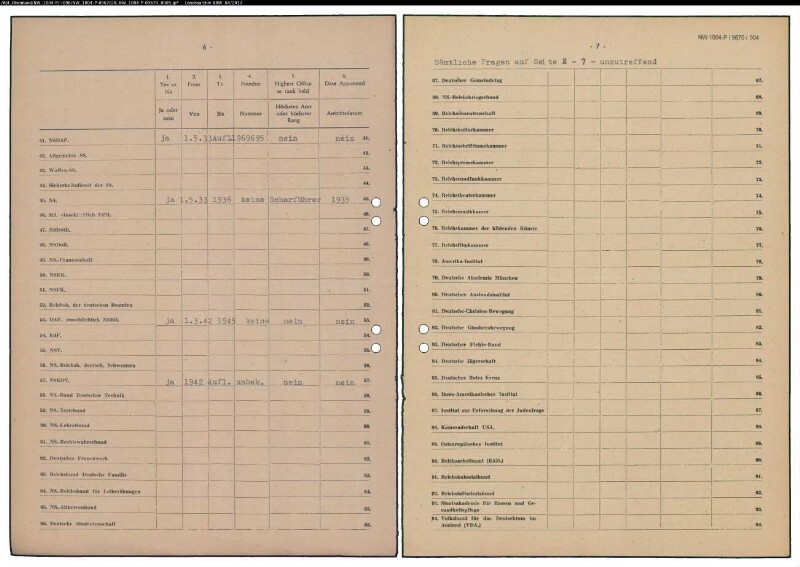 6 -
1. 2. 3. 4. 5. 6.
Yes or No From To Number Highest Office or rank held Date Appointed
Ja oder nein Von Bis Nummer Höchstes Amt oder höchster Rang Antrittsdatum
41. NSDAP. ja 1.5.33 Aufl. 1969695 nein nein 41.
42. Allgemeine SS. 42.
43. Waffen-SS. 43.
44. Sicherheitsdienst der SS. 44.
45. SA. ja 1.5.33 1936 keine Scharführer 1935 45.
46. HJ. einschließlich BdM. 46.
47. NSDStB. 47.
48. NSDoB. 48.
49. NS-Frauenschaft 49.
50. NSKK. 50.
51. NSFK. 51.
52. Reichsb. der deutschen Beamten 52.
53. DAF. einschließlich NSBO. ja 1.3.42 1945 keine nein nein 53.
54. KdF. 54.
55. NSV. 55.
56. NS-Reichsb. deutsch. Schwestern 56.
57. NSKOV. ja 1942 Aufl. unbek. nein nein 57.
58. NS-Bund Deutscher Technik 58.
59. NS-Ärztebund 59.
60. NS-Lehrerbund 60.
61. NS-Rechtswahrerbund 61.
62. Deutsches Frauenwerk 62.
63. Reichsbund Deutsche Familie 63.
64. NS-Reichsbund für Leibesübungen 64.
65. NS-Altherrenbund 65.
66. Deutsche Studentenschaft 66.
NW 1004-P / 9670 / 004
- 7 -
Sämtliche Fragen auf Seite - 7 - unzutreffend
67. Deutscher Gemeindetag 67.
68. NS.-Reichskriegerbund 68.
69. Reichsdozentenschaft 69.
70. Reichskulturkammer 70.
71. Reichsschrifttumskammer 71.
72. Reichspressekammer 72.
73. Reichsrundfunkkammer 73.
74. Reichstheaterkammer 74.
75. Reichsmusikkammer 75.
76. Reichskammer der bildenden Künste 76.
77. Reichsfilmkammer 77.
78. Amerika-Institut 78.
79. Deutsche Akademie München 79.
80. Deutsches Auslandsinstitut 80.
81. Deutsche-Christen-Bewegung 81.
82. Deutsche Glaubensbewegung 82.
83. Deutscher Fichte-Bund 83.
84. Deutsche Jägerschaft 84.
85. Deutsches Rotes Kreuz 85.
86. Ibero-Amerikanisches Institut 86.
87. Institut zur Erforschung der Judenfrage 87.
88. Kameradschaft USA. 88.
89. Osteuropäisches Institut 89.
90. Reichsarbeitsdienst (RAD.) 90.
91. Reichskolonialbund 91.
92. Reichsluftschutzbund 92.
93. Staatsakademie für Rassen und Gesundheitspflege 93.
94. Volksbund für das Deutschtum im Ausland (VDA.) 94.